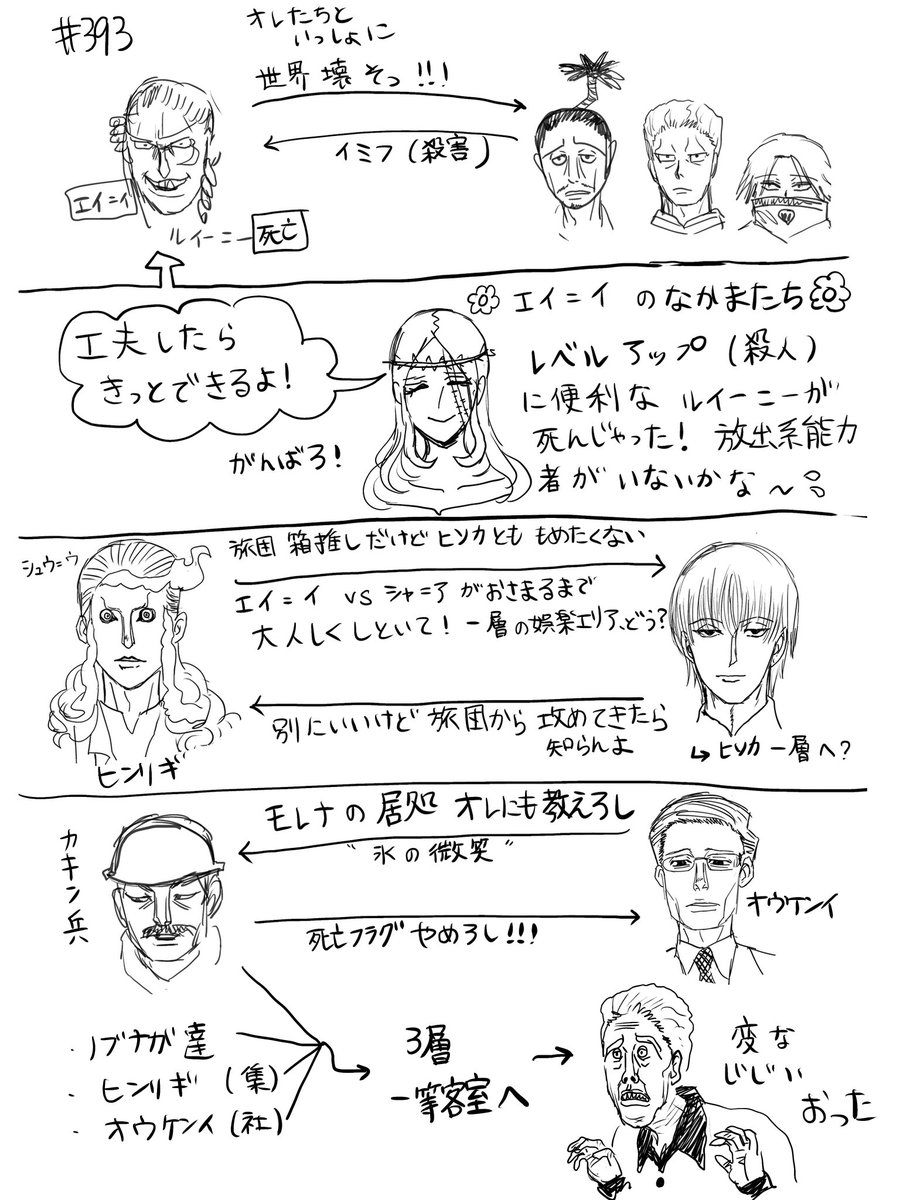 #393
オレたちと
いっしょに
世界 壊そっ!!!
イミフ (殺害)
エイ=イ
ルイーニー 死亡
エイ=イ のなかまたち
レベルアップ (殺人)
に便利な ルイーニーが
死んじゃった! 放出系能力
者が いないかな〜
工夫したら
きっとできるよ!
がんばろ!
旅団 箱推しだけど ヒソカとも もめたくない
シュウ=ウ
エイ=イ vs シャ=ア がおさまるまで
大人しくしといて! 一層の娯楽エリア、どう?
別にいいけど 旅団から 攻めてきたら
知らんよ
ヒンリギ
↳ ヒソカ 一層へ?
モレナの居処 オレにも教えろし
"氷の微笑"
カキン兵
オウケンイ
死亡フラグ やめろし!!!
・ノブナガ達
・ヒンリギ (集)
・オウケンイ (社)
3層
一等客室へ
変な
じじい
おった